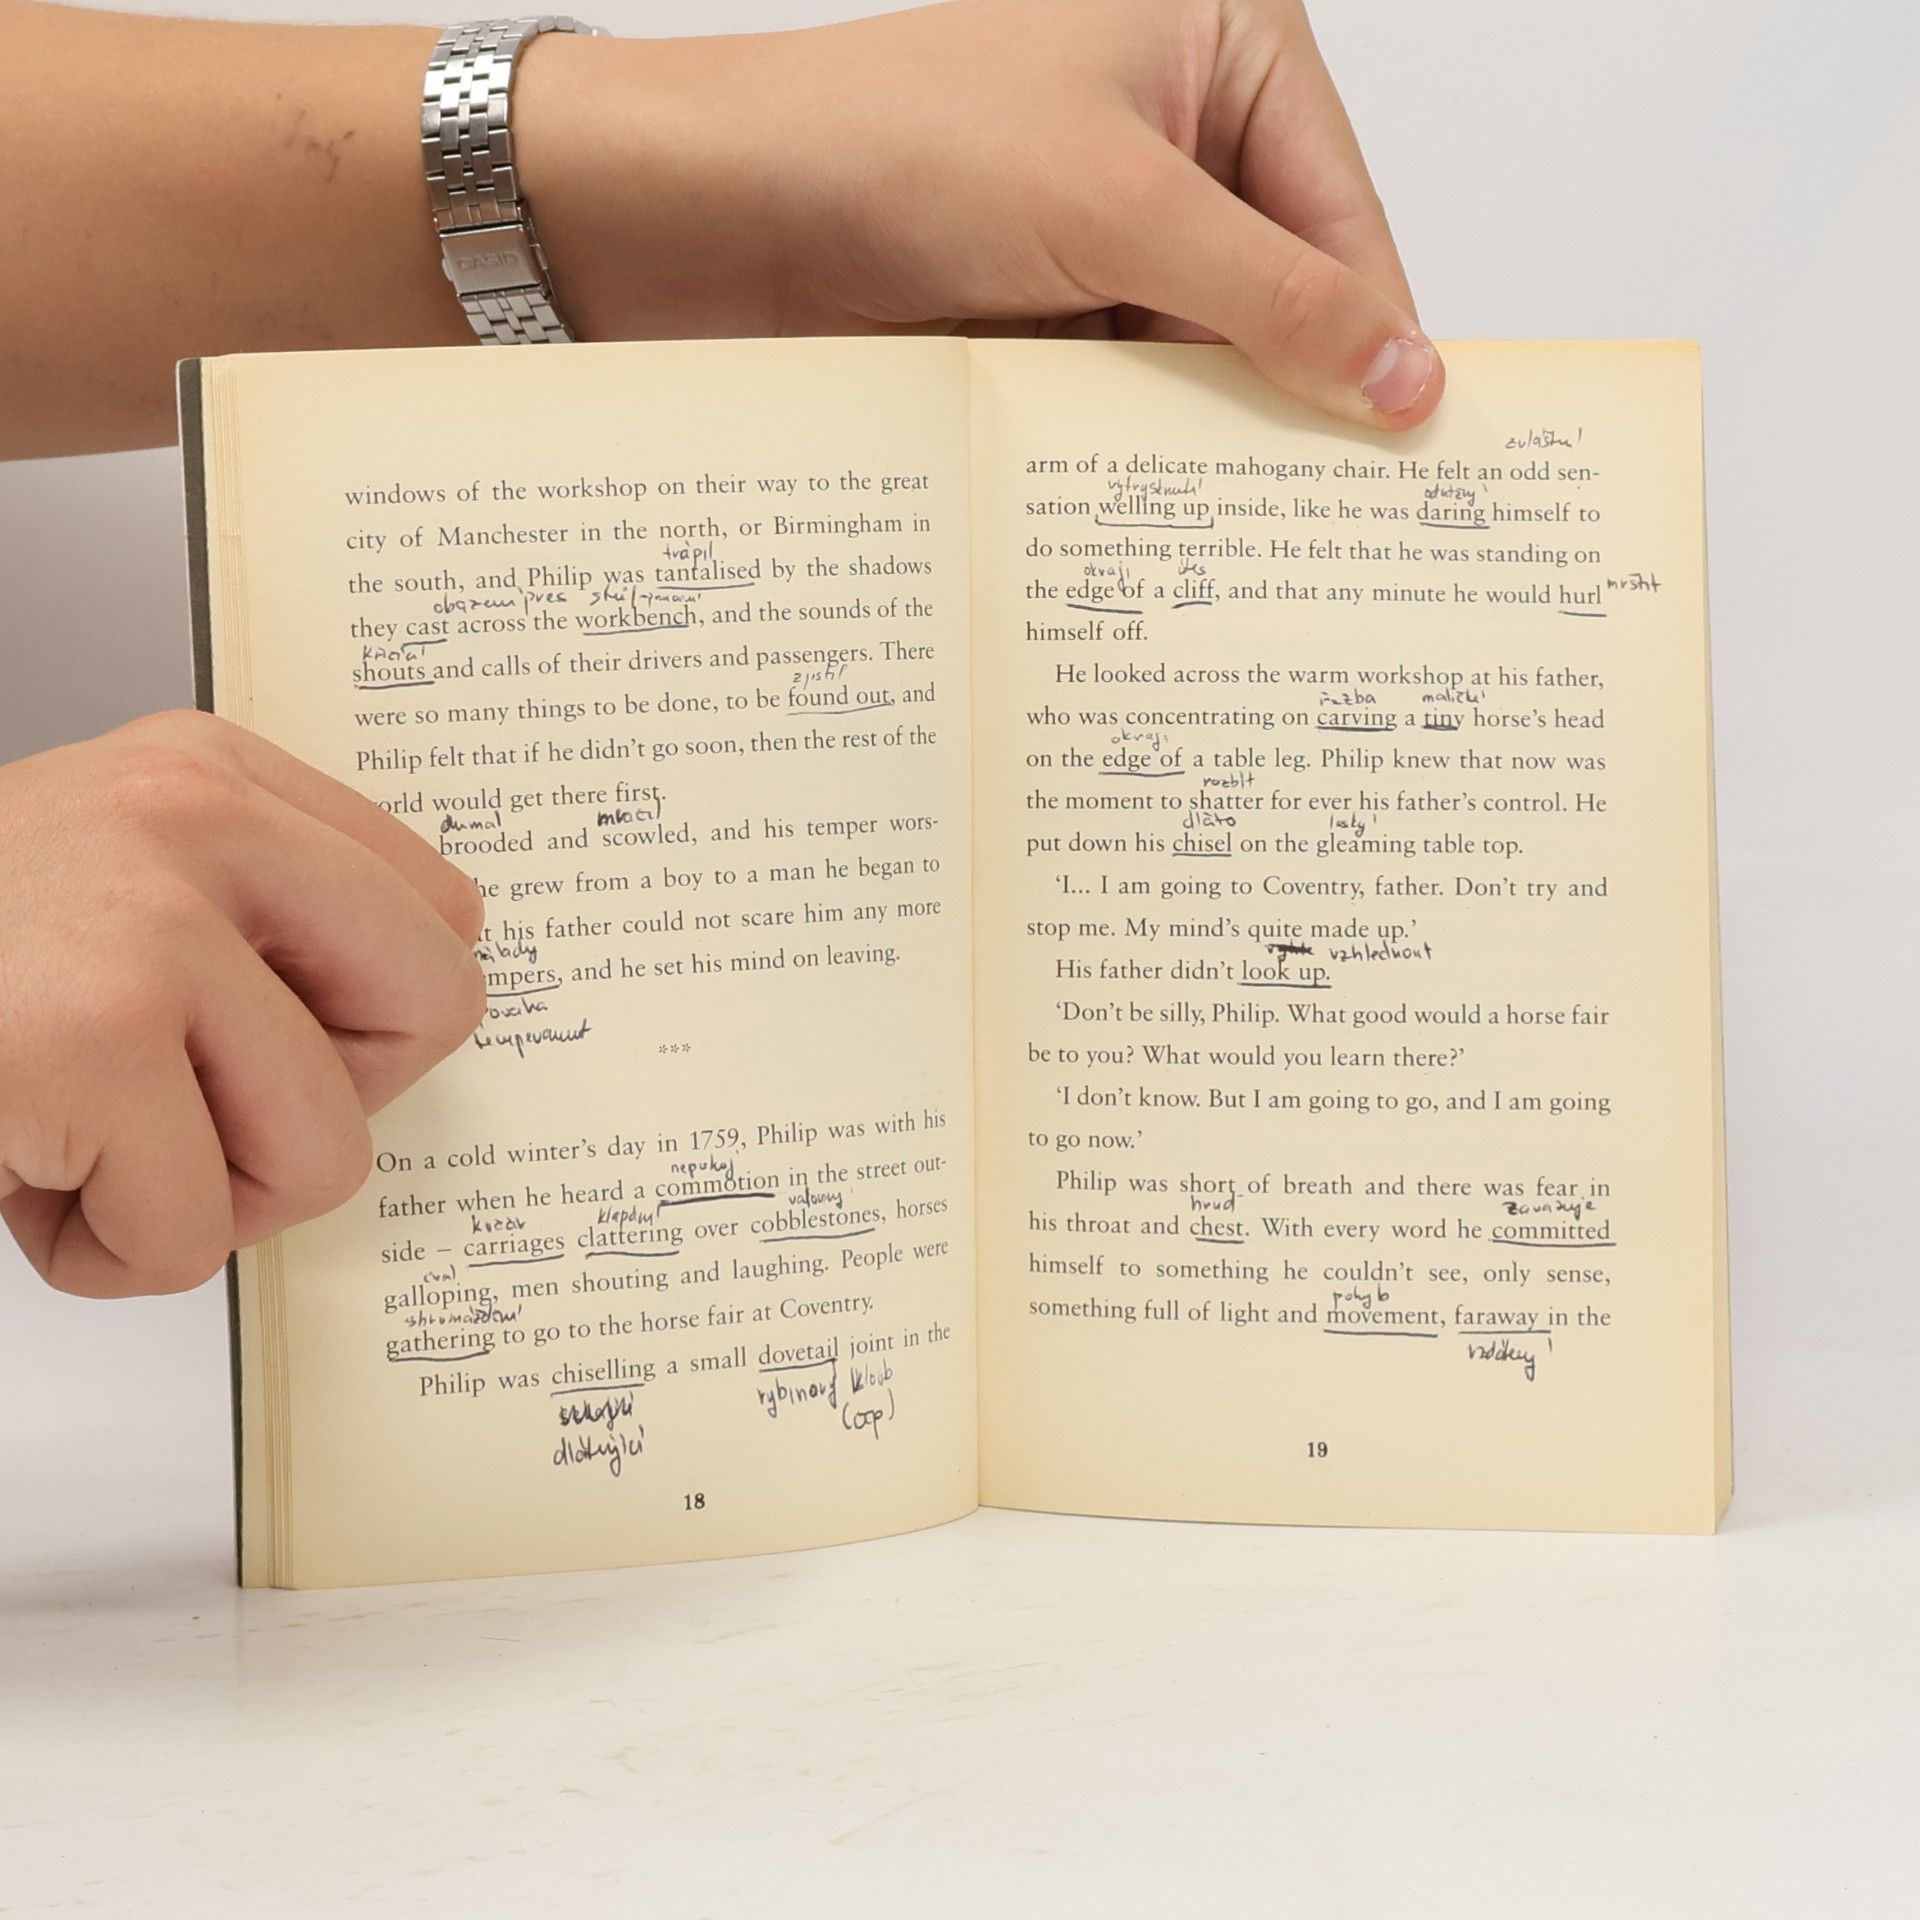 CASIO
windows of the workshop on their way to the great
city of Manchester in the north, or Birmingham in
trápil
the south, and Philip was tantalised by the shadows
they cast across the workbench, and the sounds of the
shouts and calls of their drivers and passengers. There
zjistit
were so many things to be done, to be found out, and
Philip felt that if he didn't go soon, then the rest of the
would get there first.
dumal mračil
brooded and scowled, and his temper wors-
he grew from a boy to a man he began to
his father could not scare him any more
and he set his mind on leaving.
***
On a cold winter's day in 1759, Philip was with his
nepokoj
father when he heard a commotion in the street out-
kočár klapání valouny
side – carriages clattering over cobblestones, horses
cval
galloping, men shouting and laughing. People were
shromáždění
gathering to go to the horse fair at Coventry.
Philip was chiselling a small dovetail joint in the
rybinový kloub
(čep)
dlátující
18
zvláštní
arm of a delicate mahogany chair. He felt an odd sen-
vytrysknutí
sation welling up inside, like he was daring himself to
do something terrible. He felt that he was standing on
okraji útes
the edge of a cliff, and that any minute he would hurl mrštit
himself off.
He looked across the warm workshop at his father,
řezba maličký
who was concentrating on carving a tiny horse's head
okraji
on the edge of a table leg. Philip knew that now was
rozbít
the moment to shatter for ever his father's control. He
dláto lesklý
put down his chisel on the gleaming table top.
'I... I am going to Coventry, father. Don't try and
stop me. My mind's quite made up.'
vzhlednout
His father didn't look up.
'Don't be silly, Philip. What good would a horse fair
be to you? What would you learn there?'
'I don't know. But I am going to go, and I am going
to go now.'
Philip was short of breath and there was fear in
hruď zavazuje
his throat and chest. With every word he committed
himself to something he couldn't see, only sense,
pohyb
something full of light and movement, faraway in the
vzdálený
19